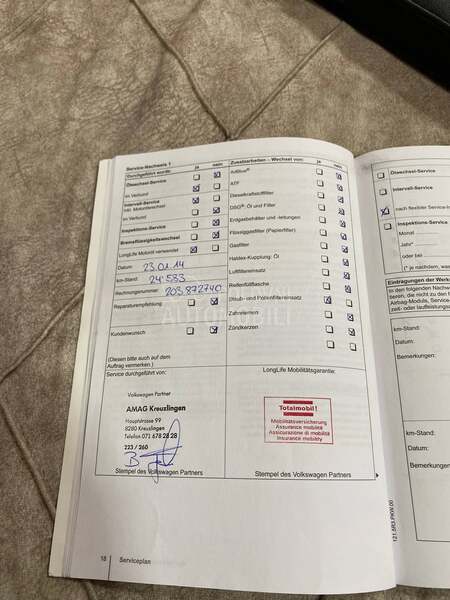 Service-Nachweis 1
Durchgeführt wurde: ja nein
Ölwechsel-Service
im Verbund
Intervall-Service
inkl. Motorölwechsel
im Verbund
Inspektions-Service
Bremsflüssigkeitswechsel
LongLife Motoröl verwendet
Datum: 23.01.14
km-Stand: 24'533
Rechnungsnummer: 203.872740
Reparaturempfehlung
Kundenwunsch
(Diesen bitte auch auf dem
Auftrag vermerken.)
Zusatzarbeiten – Wechsel von: ja nein
AdBlue®
ATF
Dieselkraftstofffilter
DSG®: Öl und Filter
Erdgasbehälter und -leitungen
Flüssiggasfilter (Papierfilter)
Gasfilter
Haldex-Kupplung: Öl
Luftfiltereinsatz
Reifenfüllflasche
Staub- und Pollenfiltereinsatz
Zahnriemen
Zündkerzen
Service durchgeführt von:
Volkswagen Partner
AMAG Kreuzlingen
Hauptstrasse 99
8280 Kreuzlingen
Telefon 071 678 28 28
223 / 260
Stempel des Volkswagen Partners
LongLife Mobilitätsgarantie:
Totalmobil!
Mobilitätsversicherung
Assurance mobilité
Assicurazione di mobilità
Insurance mobility
Stempel des Volkswagen Partners
18 Serviceplan
121.5R3.PKW.00
Ölwechsel-Service
Intervall-Service
nach flexibler Service-
Inspektions-Service
Monat
Jahr*
oder bei
(* je nachdem, was
Eintragungen der Werks
In den folgenden Nachwe
tieren, die nicht zu den
Airbag-Module, Service-
zeit- oder laufleistungs
km-Stand:
Datum:
Bemerkungen:
km-Stand:
Datum:
Bemerkungen
AUTOMOBILI